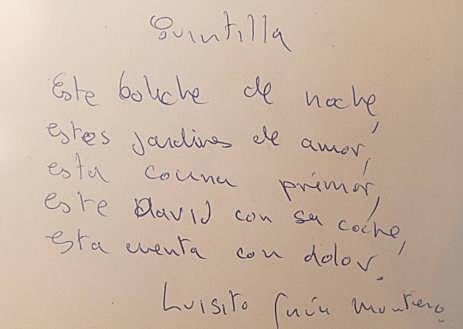 Quintilla
Este boliche de noche,
estos jardines de amor,
esta cocina primor,
este David con su coche,
esta cuenta con dolor.
Luisito Montero